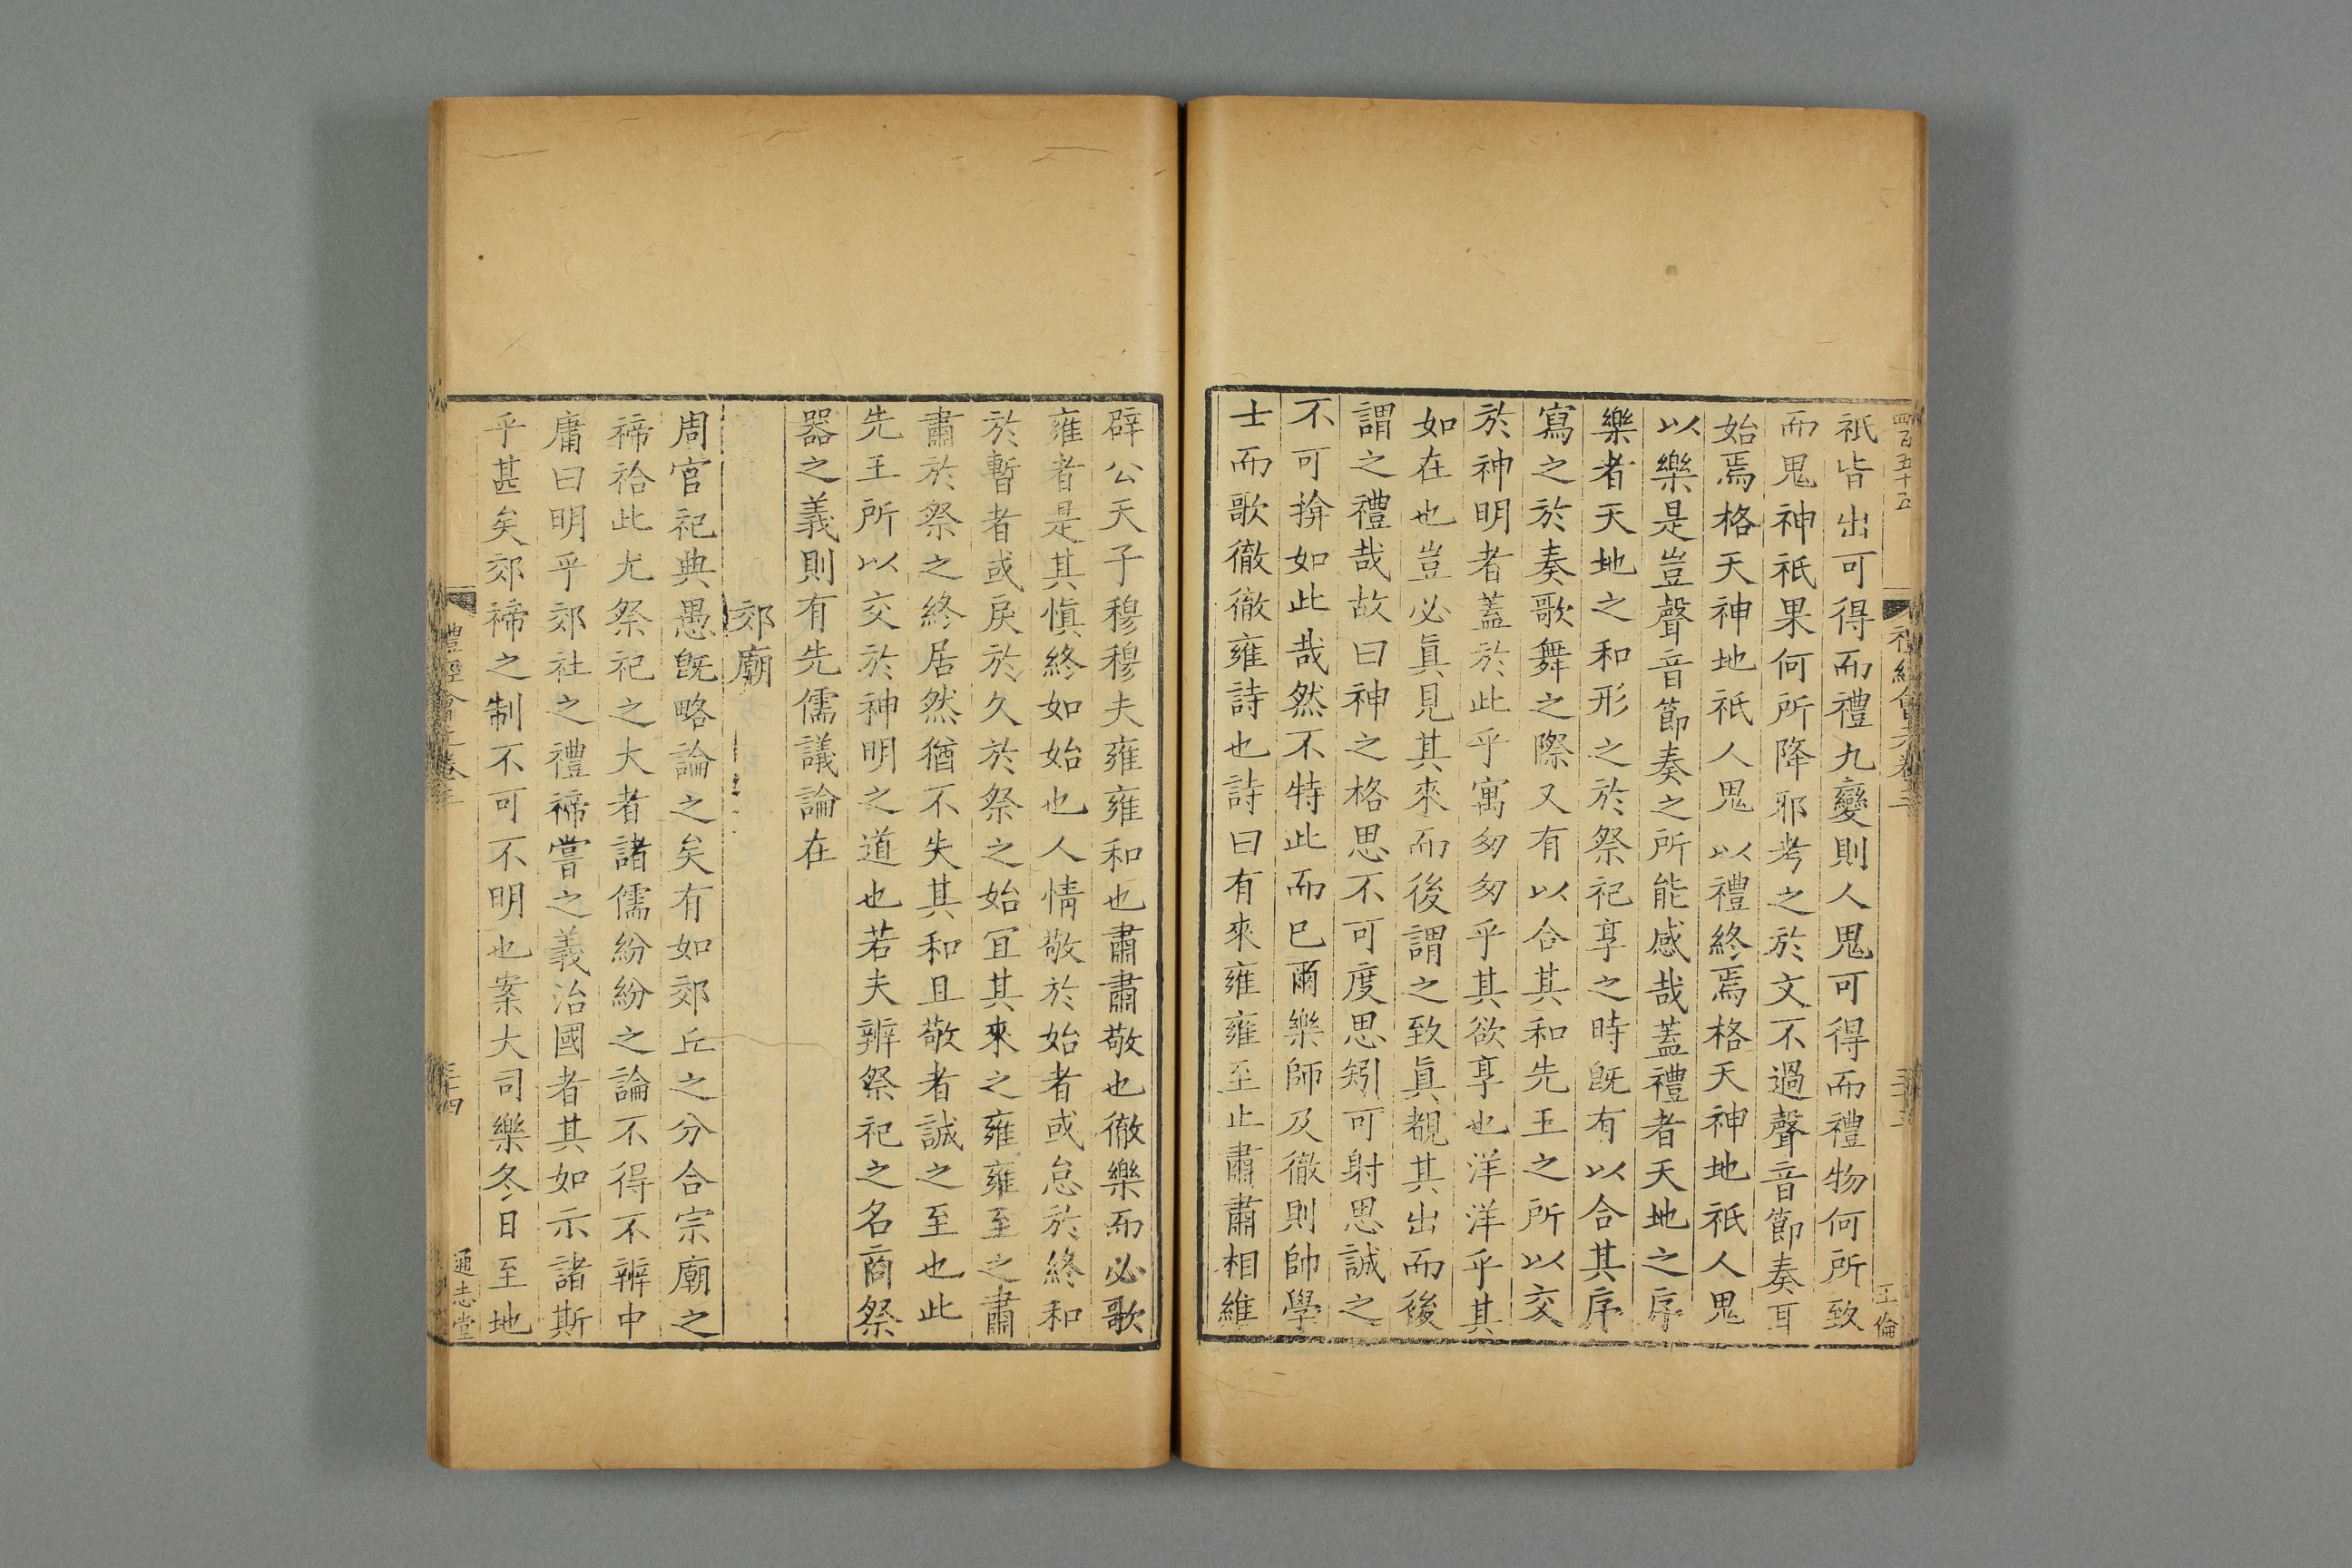 四百五十五
祇皆出可得而禮九變則人鬼可得而禮物何所致
而鬼神祇果何所降邪考之於文不過聲音節奏耳
始焉格天神地祇人鬼以禮終焉格天神地祇人鬼
以樂是豈聲音節奏之所能感哉蓋禮者天地之序
樂者天地之和形之於祭祀享之時既有以合其序
寫之於奏歌舞之際又有以合其和先王之所以交
於神明者蓋於此乎寓匆匆乎其欲享也洋洋乎其
如在也豈必眞見其來而後謂之致眞覩其出而後
謂之禮哉故曰神之格思不可度思矧可射思誠之
不可揜如此哉然不特此而已爾樂師及徹則帥學
士而歌徹徹雍詩也詩曰有來雍雍至止肅肅相維
辟公天子穆穆夫雍雍和也肅肅敬也徹樂而必歌
雍者是其愼終如始也人情敬於始者或怠於終和
於暫者或戾於久於祭之始冝其來之雍雍至之肅
肅於祭之終居然猶不失其和且敬者誠之至也此
先王所以交於神明之道也若夫辨祭祀之名商祭
器之義則有先儒議論在
郊廟
周官祀典愚既略論之矣有如郊丘之分合宗廟之
禘祫此尤祭祀之大者諸儒紛紛之論不得不辨中
庸曰明乎郊社之禮禘嘗之義治國者其如示諸斯
乎甚矣郊禘之制不可不明也案大司樂冬日至地
禮經會元卷三
三十四
通志堂